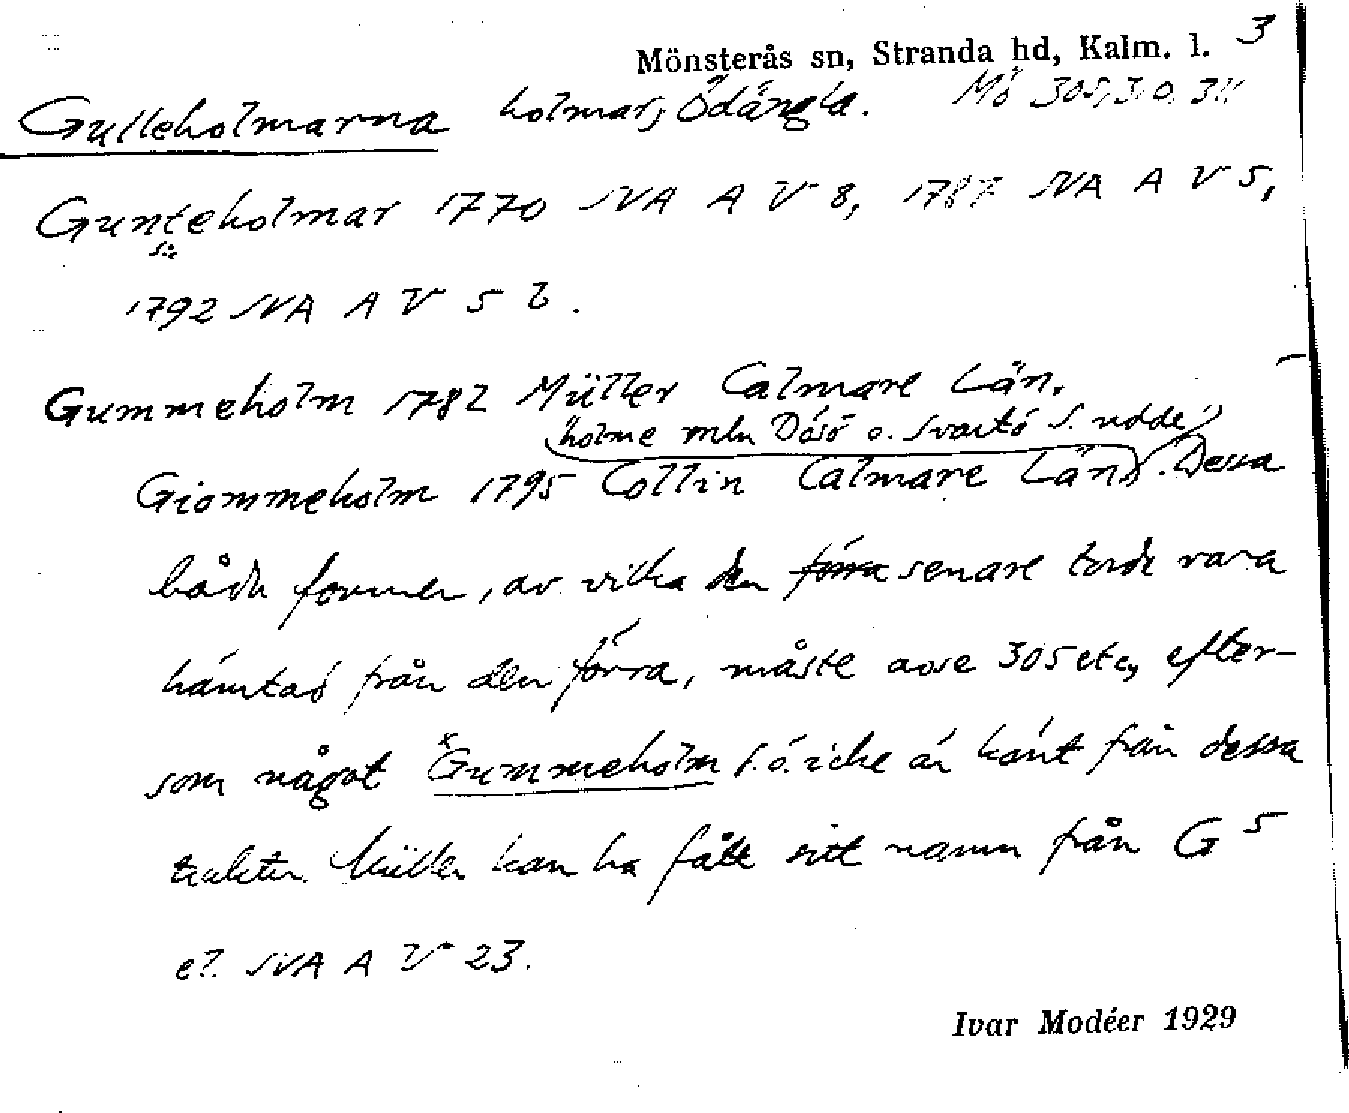 Mönsterås sn, Stranda hd, Kalm. l. 3
Gulleholmarna holmar, Ödängla. Mö 305, 310, 311
Gunteholmar 1770 SVA A V 8, 1787 SVA A V 5,
sic
1792 SVA A V 5 b.
Gummeholm 1782 Müller Calmare Län,
holme mln Dösö o. Svartö s. udde
Giommeholm 1795 Collin Calmare Län). Dessa
både former, av vilka den förra senare torde vara
hämtad från den förra, måste avse 305 etc, efter-
som något *Gummeholm f. ö. icke är känt från dessa
trakter. Müller kan ha fått sitt namn från G 5
el. SVA A V 23.
Ivar Modéer 1929